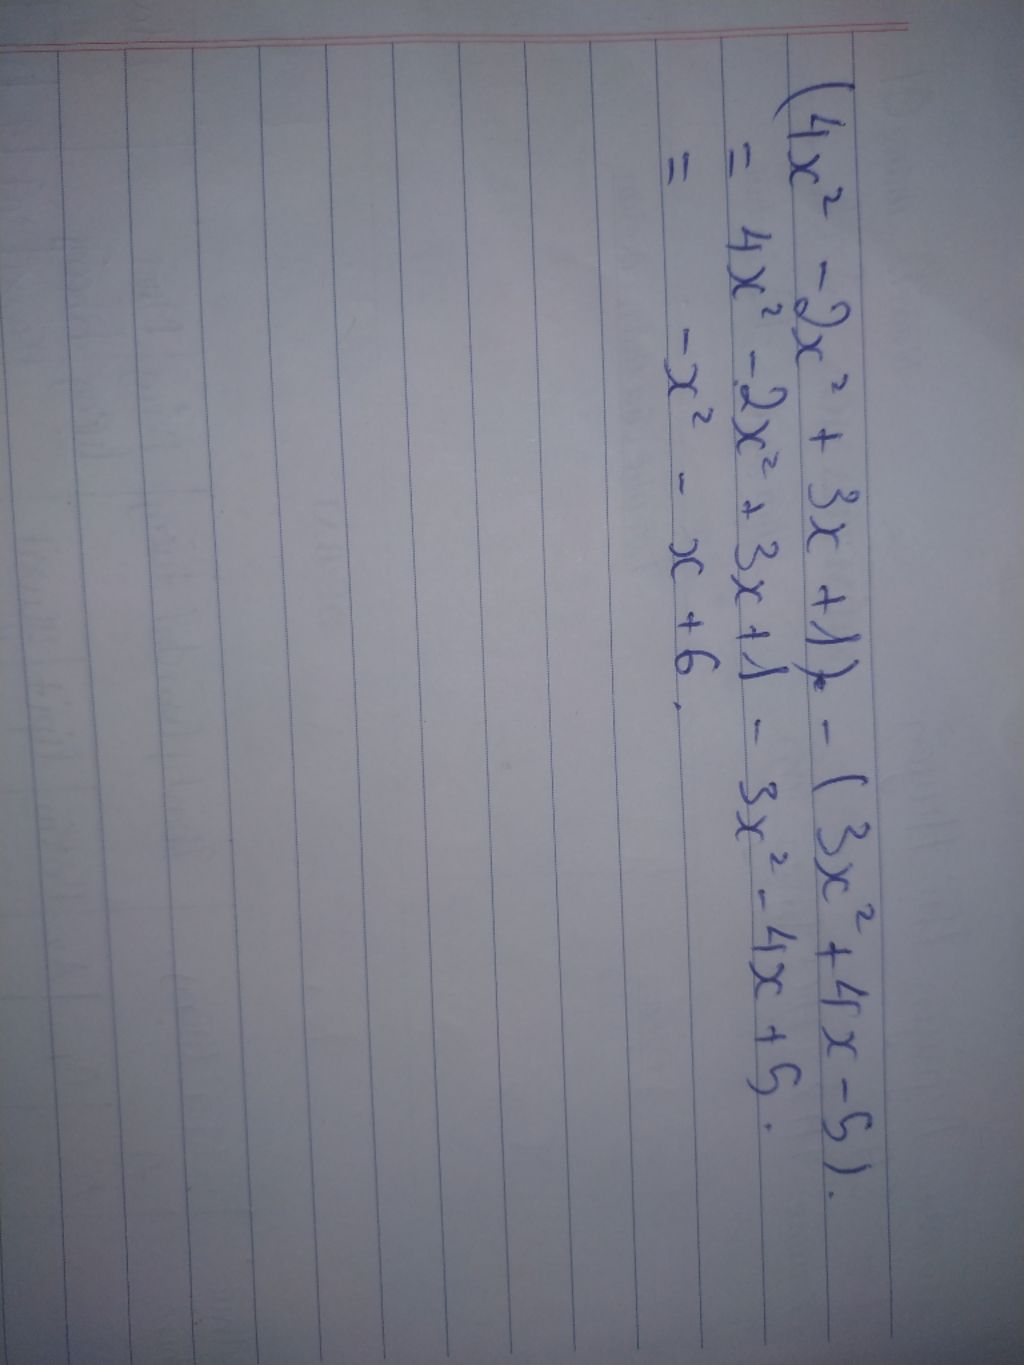 (4x² - 2x² + 3x + 1) - (3x² + 4x - 5).
= 4x² - 2x² + 3x + 1 - 3x² - 4x + 5.
= -x² - x + 6.